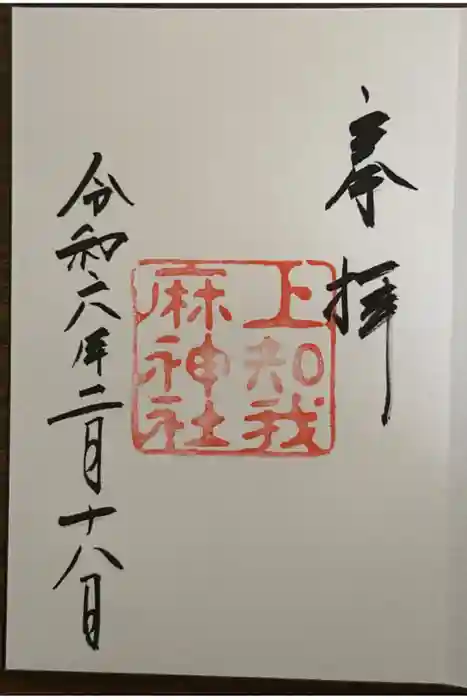 奉拝
上知我
麻神社
令和六年二月十八日